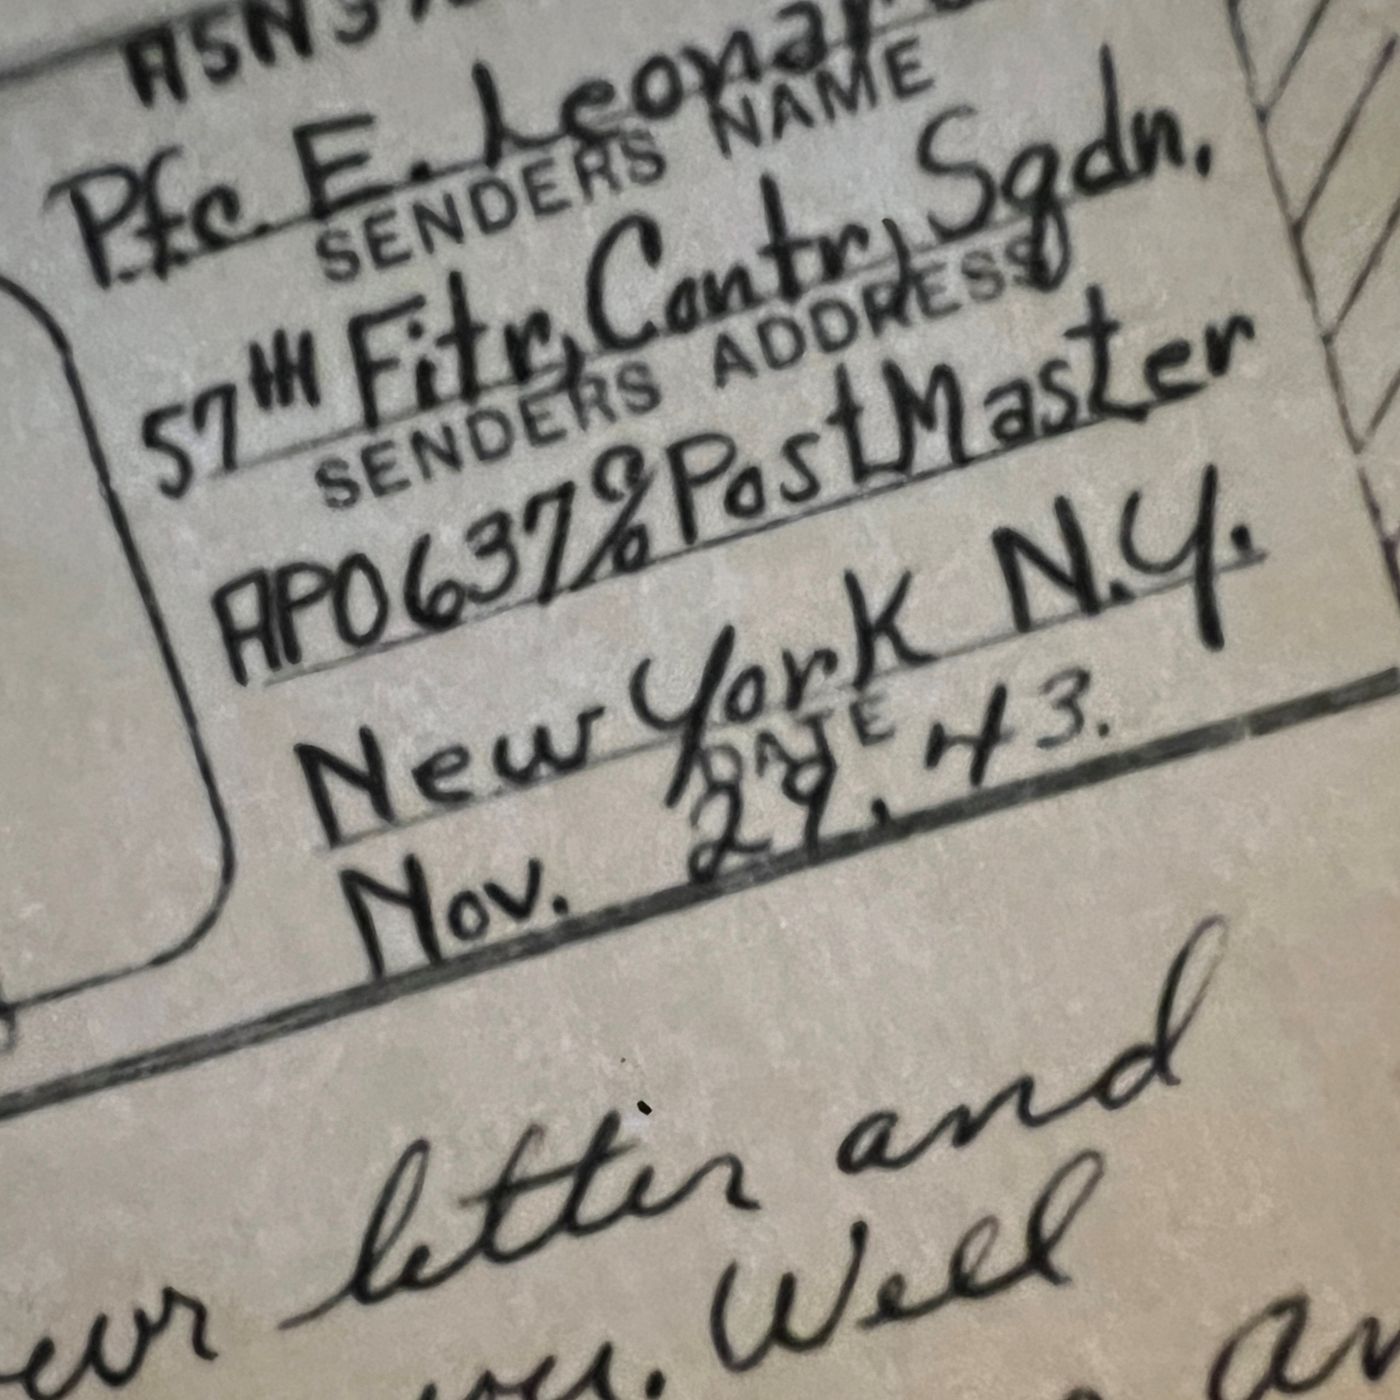 ASN 3
Pfc. E. Leonar
SENDERS NAME
57TH Fitr, Contr, Sqdn.
SENDERS ADDRESS
APO 637 % PostMaster
New York N.Y.
DATE
Nov. 29, 43.
letter and
Well